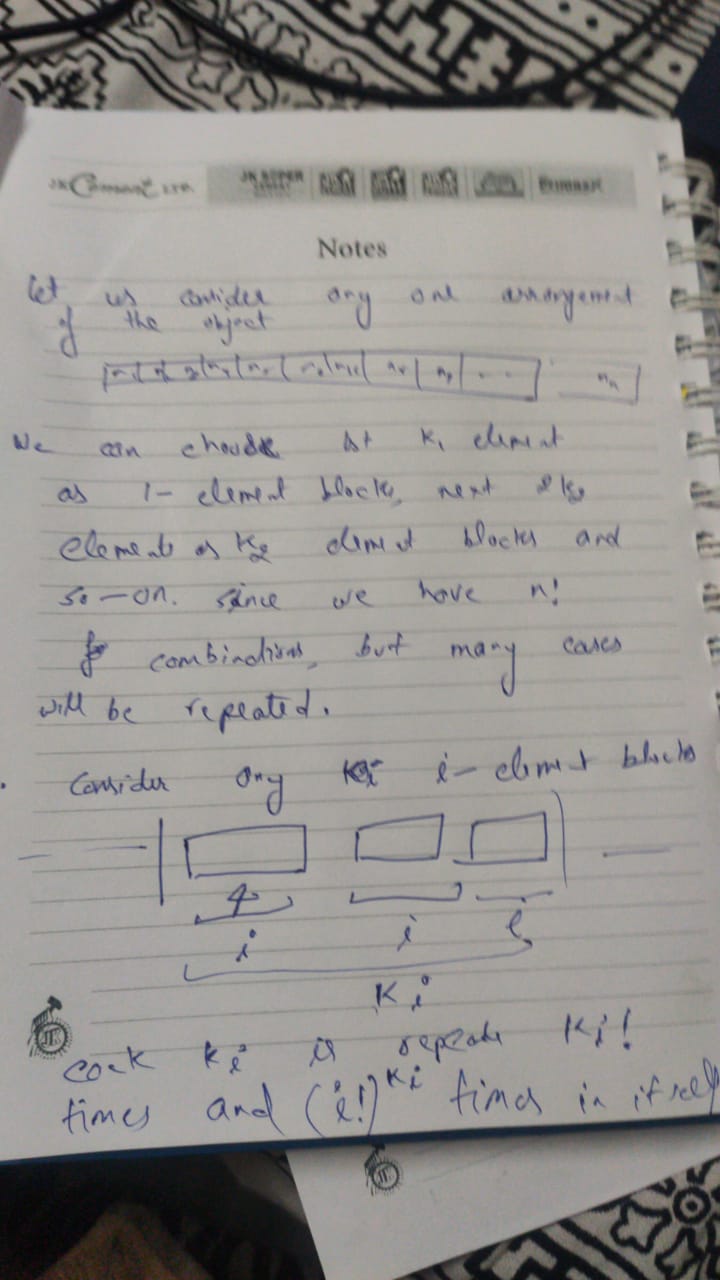 JK Cement LTD. JK SUPER
Notes
Let us consider any one arrangement
of the object
We can choose 1st K₁ element
as 1- element blocks, next K₂
elements as K₂ element blocks and
so-on. since we have n!
combinations, but many cases
will be repeated.
Consider any Ki i- element blocks
i i i
Ki
each Ki is repeate Ki!
times and (i!)^Ki times in itself